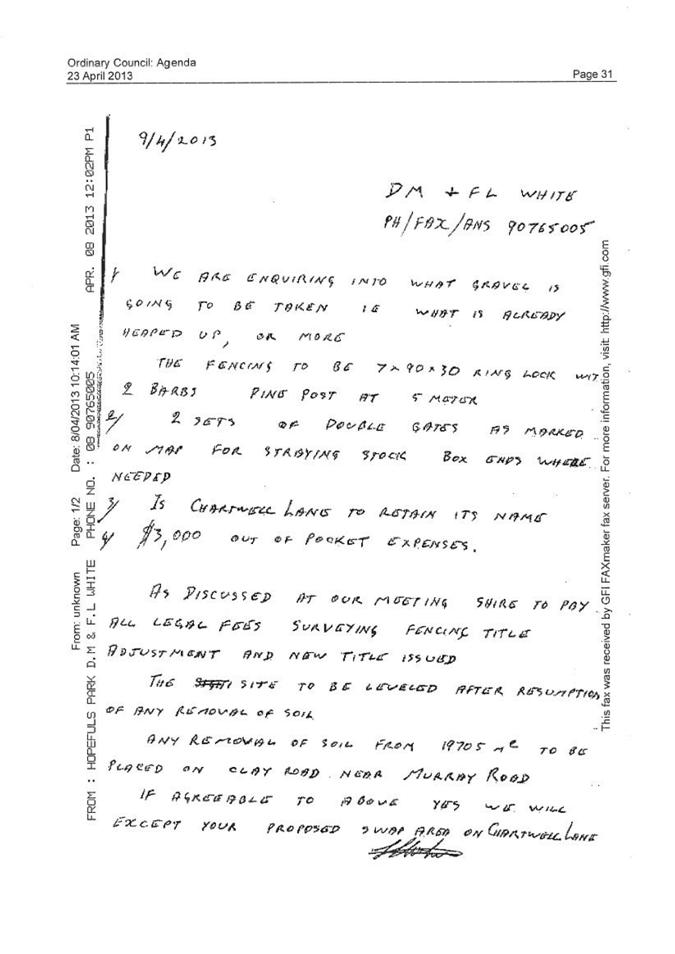 Ordinary Council: Agenda
23 April 2013
Page 31
9/4/2013
DM + FL WHITE
PH/FAX/ANS 90765005
1 WE ARE ENQUIRING INTO WHAT GRAVEL IS
GOING TO BE TAKEN IE WHAT IS ALREADY
HEAPED UP, OR MORE
THE FENCING TO BE 7×90×30 RING LOCK WIT
2 BARBS PINE POST AT 5 METER
2/ 2 SETS OF DOUBLE GATES AS MARKED
ON MAP FOR STRAYING STOCK BOX ENDS WHERE
NEEDED
3/ IS CHARTWELL LANE TO RETAIN ITS NAME
4/ $3,000 OUT OF POCKET EXPENSES.
AS DISCUSSED AT OUR MEETING SHIRE TO PAY
ALL LEGAL FEES SURVEYING FENCING TITLE
ADJUSTMENT AND NEW TITLE ISSUED
THE SITE TO BE LEVELED AFTER RESUMPTION
OF ANY REMOVAL OF SOIL
ANY REMOVAL OF SOIL FROM 19705 m² TO BE
PLACED ON CLAY ROAD NEAR MURRAY ROAD
IF AGREEABLE TO ABOVE YES WE WILL
EXCEPT YOUR PROPOSED SWAP AREA ON CHARTWELL LANE
FROM : HOPEFULS PARK D.M & F.L WHITE PHONE NO. : 08 90765005 APR. 08 2013 12:02PM P1
From: unknown Page: 1/2 Date: 8/04/2013 10:14:01 AM
This fax was received by GFI FAXmaker fax server. For more information, visit: http://www.gfi.com